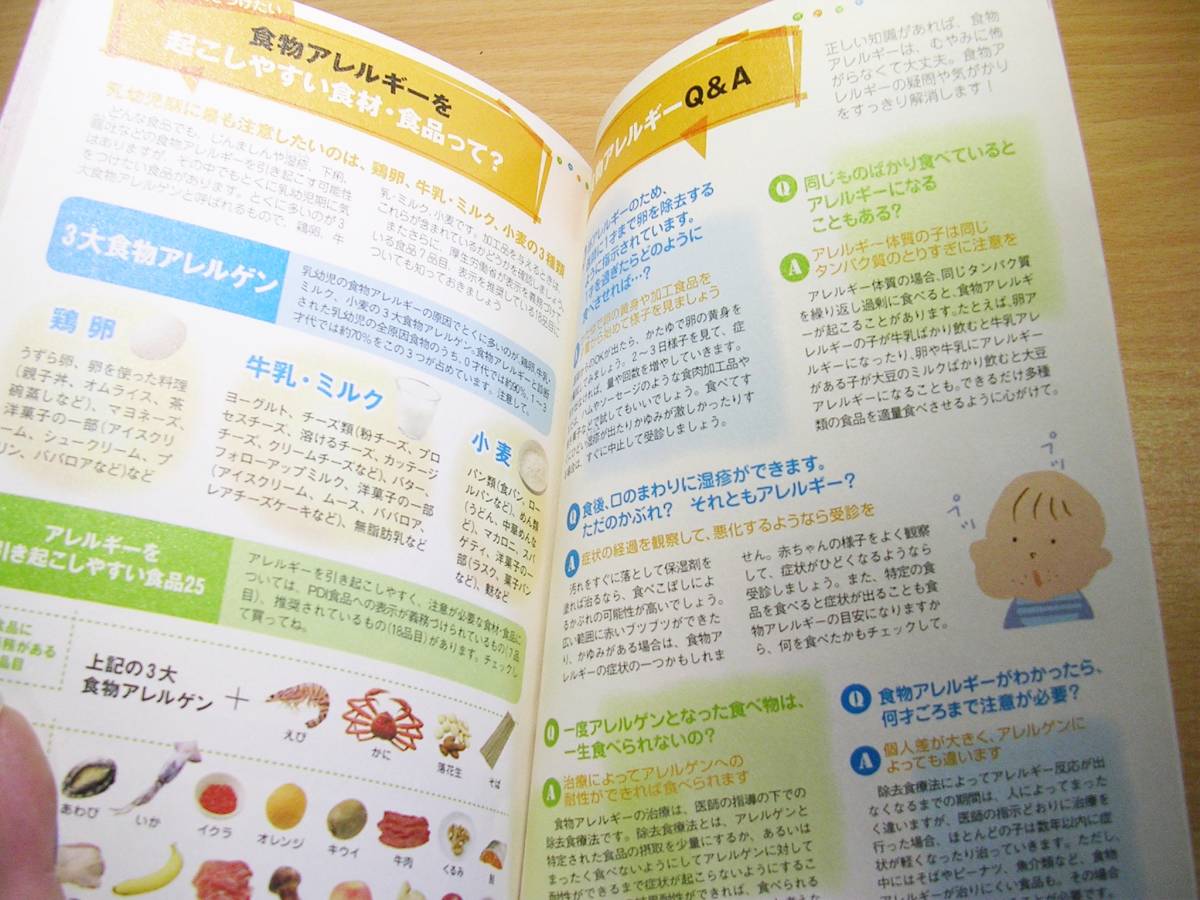 つけたい
食物アレルギーを
起こしやすい食材・食品って?
乳幼児期に最も注意したいのは、鶏卵、牛乳・ミルク、小麦の3種類
どんな食品でも、じんましんや湿疹、下痢、
嘔吐などの食物アレルギーを引き起こす可能性
はありますが、その中でもとくに乳幼児期に気
をつけたい食品があります。とくに多いのが3
大食物アレルゲンと呼ばれるもので、鶏卵、牛
乳・ミルク、小麦です。加工品を与えるときは、
これらが含まれているかどうかを確認しましょう。
またさらに、厚生労働省が表示を義務づけて
いる食品7品目、表示を推奨している18品目に
ついても知っておきましょう
3大食物アレルゲン
乳幼児の食物アレルギーの原因でとくに多いのが、鶏卵、牛乳・
ミルク、小麦の3大食物アレルゲン。食物アレルギーと診断
された乳幼児の全原因食物のうち、0才代では約90%、1〜3
才代では約70%をこの3つが占めています。注意して。
鶏卵
うずら卵、卵を使った料理
(親子丼、オムライス、茶
碗蒸しなど)、マヨネーズ、
洋菓子の一部(アイスクリ
ーム、シュークリーム、プ
リン、ババロアなど)など
牛乳・ミルク
ヨーグルト、チーズ類(粉チーズ、プロ
セスチーズ、溶けるチーズ、カッテージ
チーズ、クリームチーズなど)、バター、
フォローアップミルク、洋菓子の一部
(アイスクリーム、ムース、ババロア、
レアチーズケーキなど)、無脂肪乳など
小麦
パン類(食パン、ロー
ルパンなど)、めん類
(うどん、中華めんな
ど)、マカロニ、スパ
ゲティ、洋菓子の一
部(ラスク、菓子パン
など)、麩など
アレルギーを
引き起こしやすい食品25
アレルギーを引き起こしやすく、注意が必要な食材・食品に
ついては、PDI食品への表示が義務づけられているもの(7品
目)、推奨されているもの(18品目)があります。チェックし
て買ってね。
食品に
務がある
品目
上記の3大
食物アレルゲン
+
えび
かに
落花生
そば
あわび
いか
イクラ
オレンジ
キウイ
牛肉
くるみ
物アレルギーQ&A
正しい知識があれば、食物
アレルギーは、むやみに怖
がらなくて大丈夫。食物ア
レルギーの疑問や気がかり
をすっきり解消します!
アレルギーのため、
に1才まで卵を除去する
ように指示されています。
1才を過ぎたらどのように
食べさせれば…?
で卵の黄身や加工食品を
から始めて様子を見ましょう
LOOKが出たら、かたゆで卵の黄身を
てみましょう。2〜3日様子を見て、症
ければ、量や回数を増やしていきます。
ハムやソーセージのような食肉加工品や
き菓子などで試してもいいでしょう。食べてす
にひどい湿疹が出たりかゆみが激しかったりす
る場合は、すぐに中止して受診しましょう。
Q 同じものばかり食べていると
アレルギーになる
こともある?
A アレルギー体質の子は同じ
タンパク質のとりすぎに注意を
アレルギー体質の場合、同じタンパク質
を繰り返し過剰に食べると、食物アレルギ
ーが起こることがあります。たとえば、卵ア
レルギーの子が牛乳ばかり飲むと牛乳アレ
ルギーになったり、卵や牛乳にアレルギー
がある子が大豆のミルクばかり飲むと大豆
アレルギーになることも。できるだけ多種
類の食品を適量食べさせるように心がけて。
Q 食後、口のまわりに湿疹ができます。
ただのかぶれ? それともアレルギー?
A 症状の経過を観察して、悪化するようなら受診を
汚れをすぐに落として保湿剤を
塗れば治るなら、食べこぼしによ
るかぶれの可能性が高いでしょう。
広い範囲に赤いブツブツができた
り、かゆみがある場合は、食物ア
レルギーの症状の一つかもしれま
せん。赤ちゃんの様子をよく観察
して、症状がひどくなるようなら
受診しましょう。また、特定の食
品を食べると症状が出ることも食
物アレルギーの目安になりますか
ら、何を食べたかもチェックして。
プツ
プツ
Q 一度アレルゲンとなった食べ物は、
一生食べられないの?
A 治療によってアレルゲンへの
耐性ができれば食べられます
食物アレルギーの治療は、医師の指導の下での
除去食療法です。除去食療法とは、アレルゲンと
特定された食品の摂取を少量にするか、あるいは
まったく食べないようにしてアレルゲンに対して
耐性ができるまで症状が起こらないようにするこ
Q 食物アレルギーがわかったら、
何才ごろまで注意が必要?
A 個人差が大きく、アレルゲンに
よっても違います
除去食療法によってアレルギー反応が出
なくなるまでの期間は、人によってまった
く違いますが、医師の指示どおりに治療を
行った場合、ほとんどの子は数年以内に症
状が軽くなったり治っていきます。ただし、
中にはそばやピーナツ、魚介類など、食物
アレルギーが治りにくい食品も。その場合